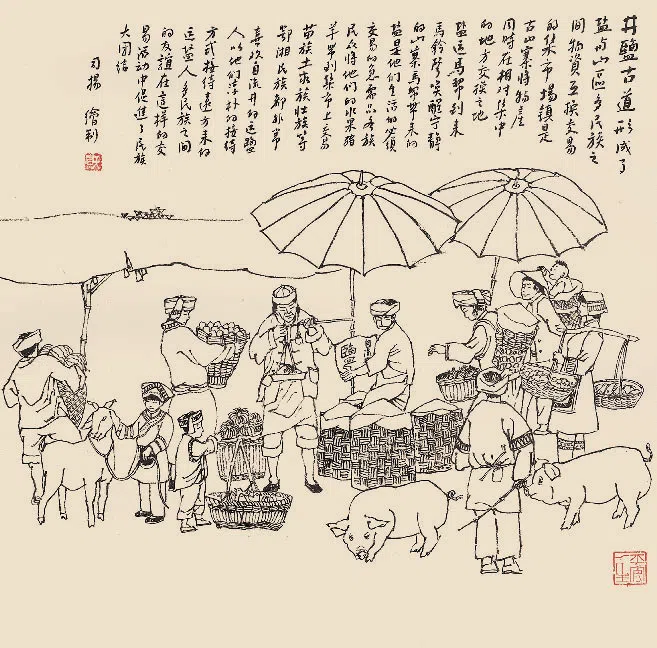 井鹽古道形成了
盐与山區多民族之
间物資互换交易
的集市場鎮是
古山寨特物產
同時在相对集中
的地方交换之地
盐运馬帮到来
馬鈴聲唤醒宁静
的山寨馬帮带来的
盐是他们生活的必須
交易的急需品各族
民众将他们的水果猪
羊到集市上交易
苗族土家族壮族等
鄂湘民族都非常
喜欢自流井的运盐
人以他们淳朴的接待
方式接待遠方来的
运盐人多民族之间
的友誼在這样的交
易活动中促進了民族
大团结
司揚 繪制
鹽